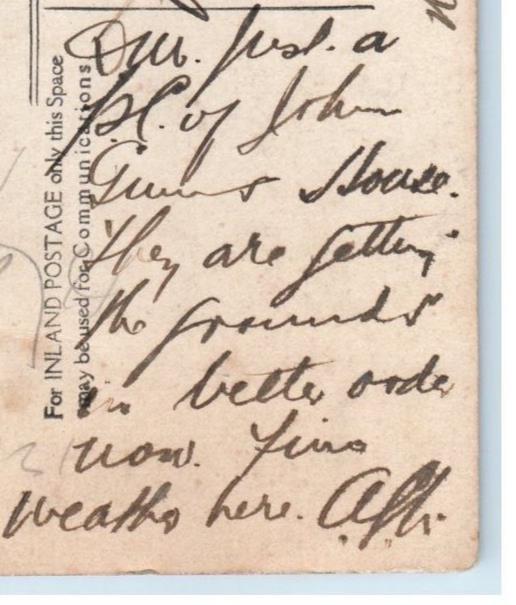 For INLAND POSTAGE only this Space
may be used for Communications
Just a
P.C. of John
Gunns House.
They are getting
the grounds
in better order
now. Fine
weather here. Aff.